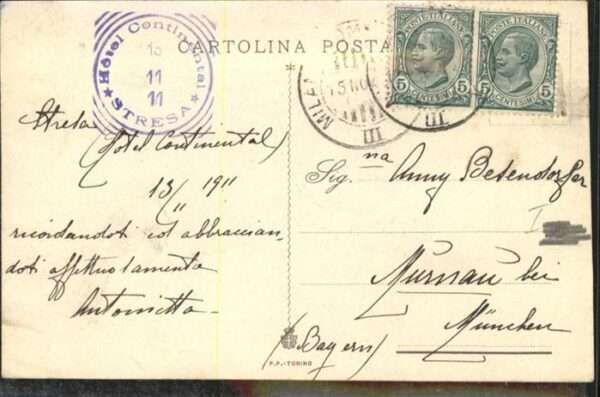 CARTOLINA POSTA
Hôtel Continental
13
11
11
★ STRESA ★
POSTE ITALIANE
5 CENTESIMI 5
POSTE ITALIANE
5 CENTESIMI 5
MILA
15 NO
III
III
Stresa
(Hotel Continental)
13/11 1911
ricordandoti ed abbraccian-
doti affettuosamente
Antonietta
Sig.na Anny Betendorfer
Murnau bei
München
(Bayern)
P.P.-TORINO